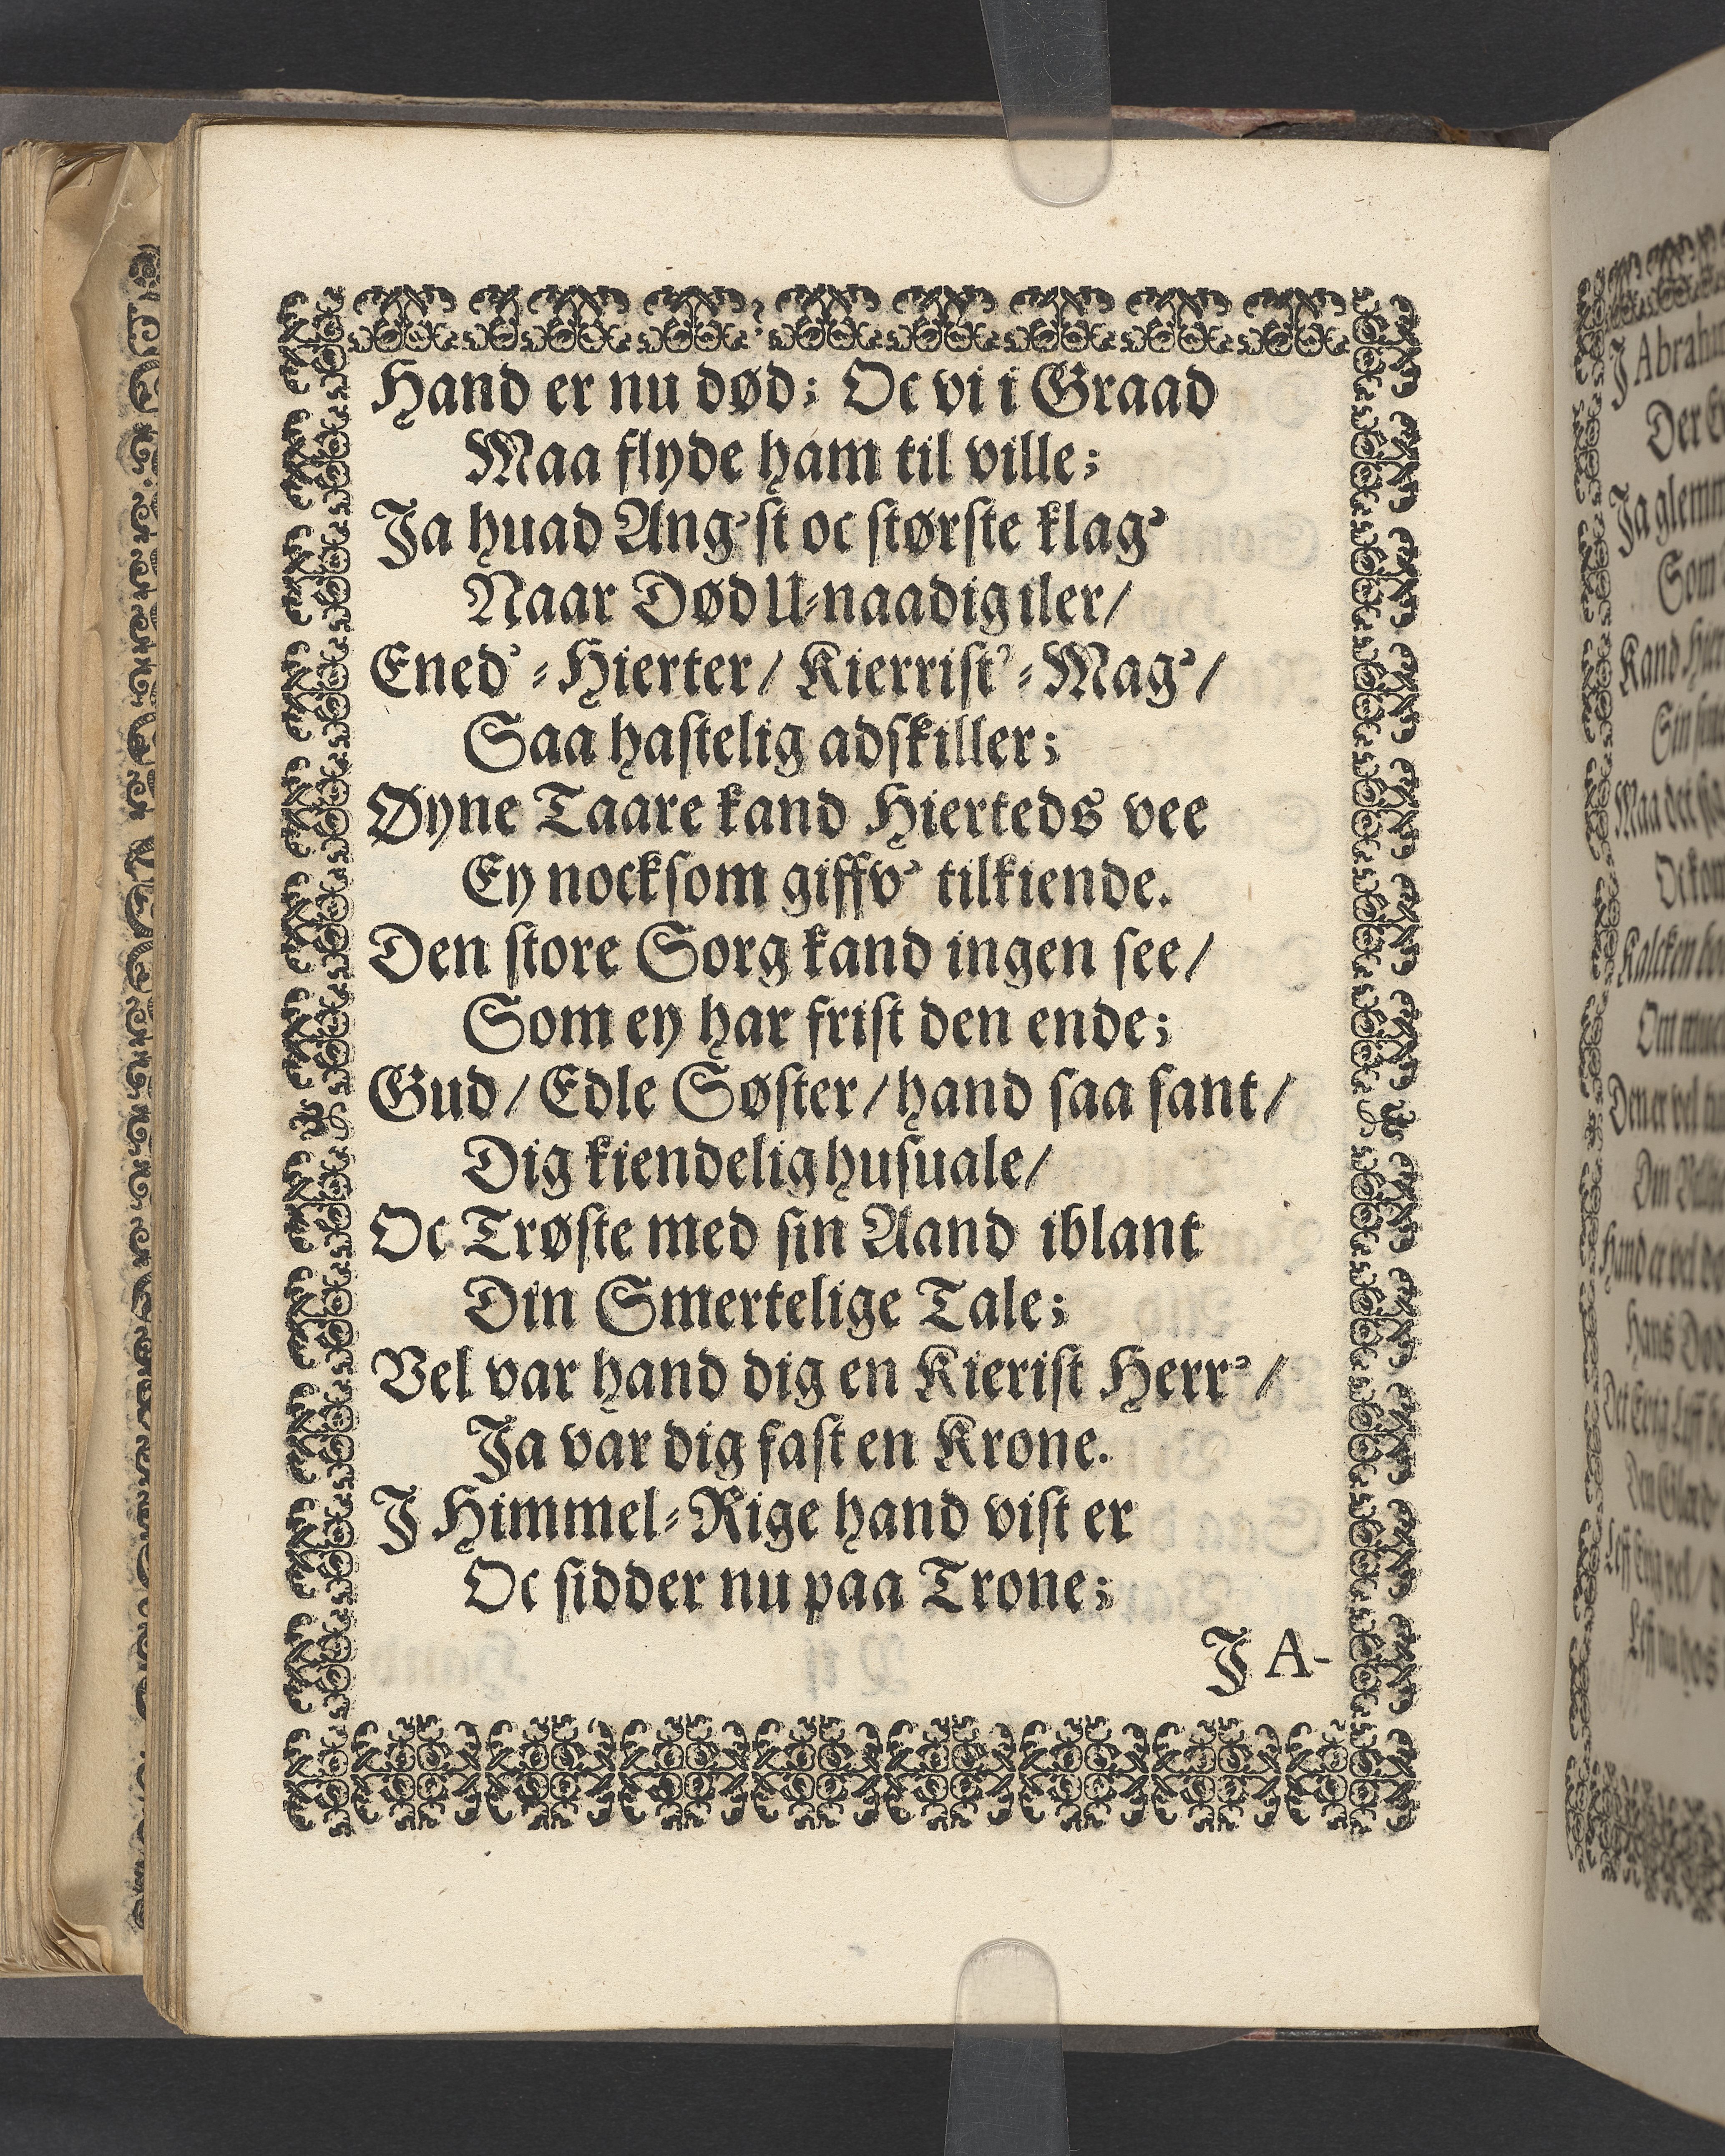 Hand er nu død; Oc vi i Graad
Maa flyde ham til ville;
Ja huad Ang'st oc største klag'
Naar Død U-naadig iler/
Ened'-Hierter/ Kierrist'-Mag'/
Saa hastelig adskiller;
Øyne Taare kand Hierteds vee
Ey nocksom giffv' tilkiende.
Den store Sorg kand ingen see/
Som ey har frist den ende;
Gud/ Edle Søster/ hand saa sant/
Dig kiendelig husuale/
Oc Trøste med sin Aand iblant
Din Smertelige Tale;
Vel var hand dig en Kierist Herr'/
Ja var dig fast en Krone.
J Himmel-Rige hand vist er
Oc sidder nu paa Trone;
J A-
J Abraha
Ja glemm
Som
Hans Død